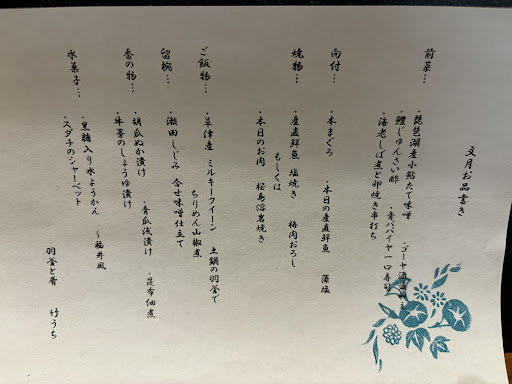 文月お品書き
前菜…
・琵琶湖産小鮎たて味噌
・鱧じゅんさい酢
・ゴーヤ
・青パパイヤ一口寿司
・海老しば煮と卵焼き串打ち
向付…
・本まぐろ ・本日の産直鮮魚 藻塩
焼物…
・産直鮮魚 塩焼き 梅肉おろし
もしくは
・本日のお肉 桜島溶岩焼き
ご飯物…
・草津産 ミルキークイーン 土鍋の羽釜で
ちりめん山椒煮
留椀…
・瀬田しじみ 合せ味噌仕立て
香の物…
・胡瓜ぬか漬け ・青瓜浅漬け ・昆布佃煮
・牛蒡のしょうゆ漬け
水菓子…
・黒糖入り水ようかん ～福井風
・スダチのシャーベット
羽釜と肴 竹うち